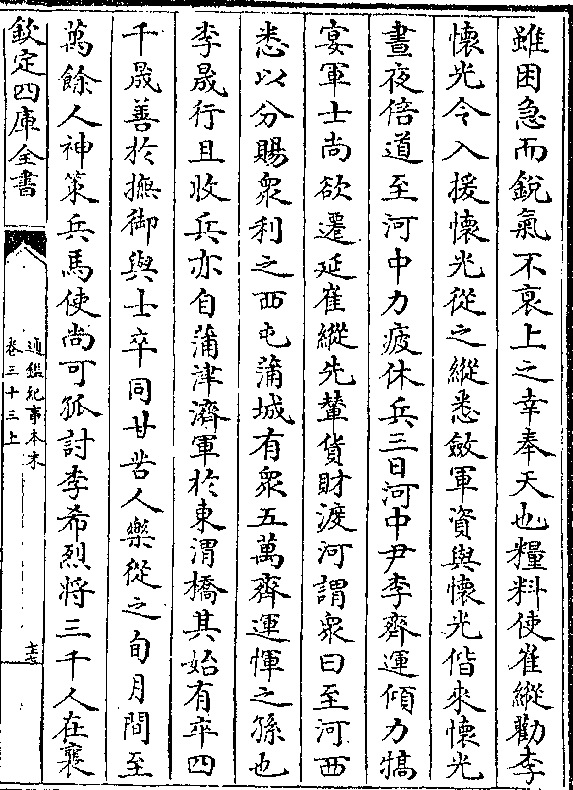 雖困急而銳氣不衰上之幸奉天也糧料使崔縱勸李
懷光令入援懷光從之縱悉斂軍資與懷光偕來懷光
晝夜倍道至河中力疲休兵三日河中尹李齊運傾力犒
宴軍士尚欲遷延崔縱先輦貨財渡河謂衆曰至河西
悉以分賜衆利之西屯蒲城有衆五萬齊運惲之孫也
李晟行且收兵亦自蒲津濟軍於東渭橋其始有卒四
千晟善於撫御與士卒同甘苦人樂從之旬月間至
萬餘人神策兵馬使尚可孤討李希烈將三千人在襄
欽定四庫全書
通鑑紀事本末
卷三十三上